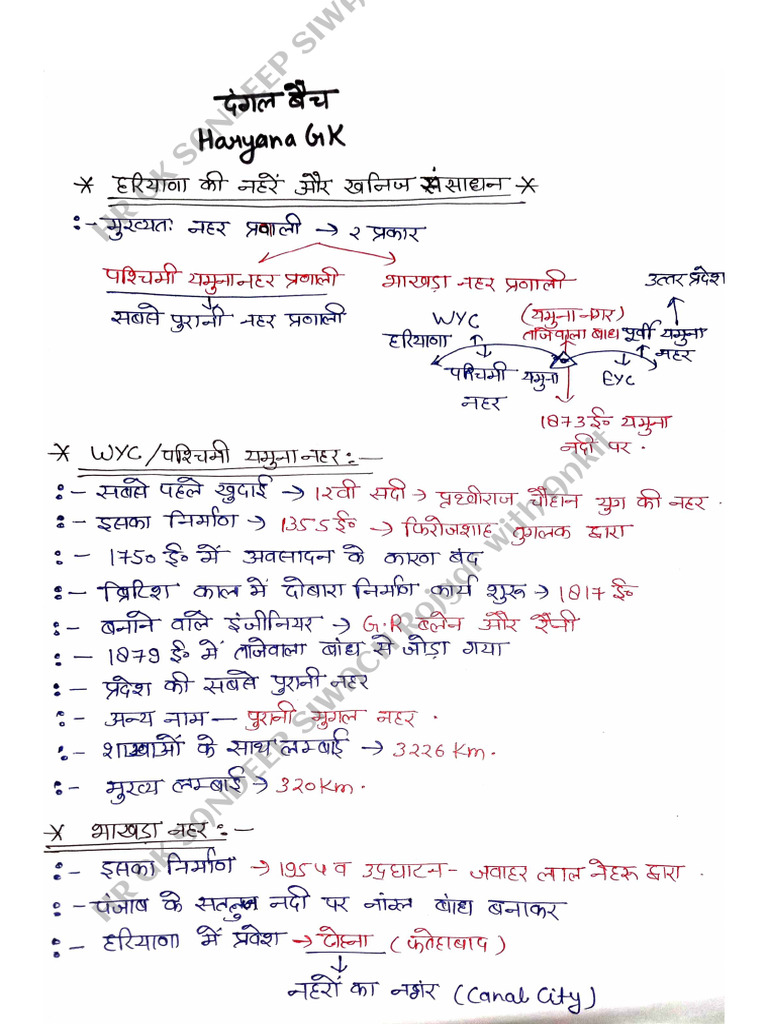 दंगल बैच
Haryana GK
* हरियाणा की नहरें और खनिज संसाधन *
:- मुख्यतः नहर प्रणाली → २ प्रकार
पश्चिमी यमुना नहर प्रणाली भाखड़ा नहर प्रणाली
सबसे पुरानी नहर प्रणाली
उत्तर प्रदेश
WYC (यमुना नगर)
हरियाणा ताजेवाला बांध पूर्वी यमुना नहर
पश्चिमी यमुना नहर EYC
1873 ई॰ यमुना
नदी पर .
* WYC/पश्चिमी यमुना नहर :-
:- सबसे पहले खुदाई → 12वी सदी → पृथ्वीराज चौहान युग की नहर .
:- इसका निर्माण → 1355 ई॰ → फिरोजशाह तुगलक द्वारा
:- 1750 ई॰ में अवसादन के कारण बंद
:- ब्रिटिश काल में दोबारा निर्माण कार्य शुरू → 1817 ई॰
:- बनाने वाले इंजीनियर → G.R ब्लेन और रैनी
:- 1879 ई॰ में ताजेवाला बांध से जोड़ा गया
:- प्रदेश की सबसे पुरानी नहर
:- अन्य नाम — पुरानी मुगल नहर .
:- शाखाओं के साथ लम्बाई → 3226 Km.
:- मुख्य लम्बाई → 320 Km.
* भाखड़ा नहर :-
:- इसका निर्माण → 1954 व उदघाटन - जवाहर लाल नेहरू द्वारा .
:- पंजाब के सतलुज नदी पर नांगल बांध बनाकर
:- हरियाणा में प्रवेश → टोहना (फतेहाबाद)
नहरों का नगर (Canal City)
HR GK SONDEEP SIWACH Rojgar with Ankit